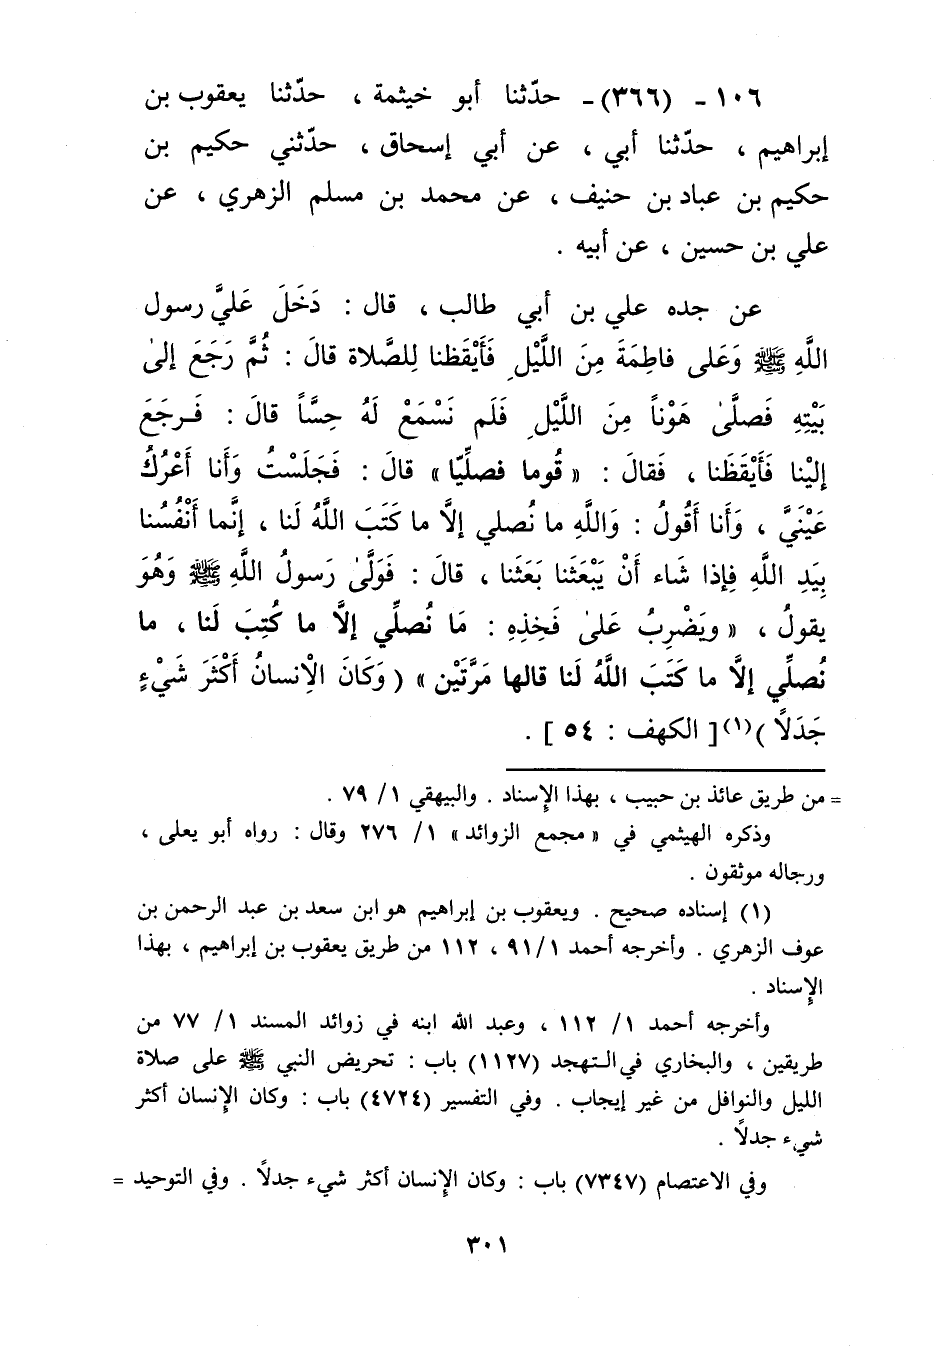 ١٠٦ - (٣٦٦) - حدّثنا أبو خيثمة ، حدّثنا يعقوب بن
إبراهيم ، حدّثنا أبي ، عن أبي إسحاق ، حدّثني حكيم بن
حكيم بن عباد بن حنيف ، عن محمد بن مسلم الزهري ، عن
علي بن حسين ، عن أبيه .
عن جده علي بن أبي طالب ، قال : دَخَلَ عَليَّ رسول
اللَّهِ ﷺ وَعَلى فاطِمَةَ مِنَ اللَّيْلِ فَأَيْقَظنا لِلصَّلاة قالَ : ثُمَّ رَجَعَ إلىٰ
بَيْتِهِ فَصلَّىٰ هَوْناً مِنَ اللَّيْلِ فَلَم نَسْمَعْ لَهُ حِسَّاً قالَ : فَـرجَعَ
إليْنا فَأَيْقَظَنا ، فَقالَ : « قُوما فصلِّيّا » قالَ : فَجَلَسْتُ وَأَنا أَعْرُكُ
عَيْنَيَّ ، وَأَنا أَقُولُ : وَاللَّهِ ما نُصلي إلاَّ ما كَتَبَ اللَّهُ لَنا ، إنَّما أَنْفُسُنا
بِيَدِ اللَّهِ فِإذا شَاء أَنْ يَبْعَثَنا بَعَثَنا ، قالَ : فَوَلَّىٰ رَسولُ اللَّهِ ﷺ وَهُوَ
يقولُ ، « ويَضْرِبُ عَلىٰ فَخِذِهِ : مَا نُصلِّي إلاَّ ما كُتِبَ لَنا ، ما
نُصلِّي إلاَّ ما كَتَبَ اللَّهُ لَنا قالها مَرَّتَيْن » ( وَكَانَ الْاِنسانُ أَكْثَرَ شَيْءٍ
جَدَلاً )(١) [ الكهف : ٥٤ ] .
= من طريق عائذ بن حبيب ، بهذا الإِسناد . والبيهقي ١/ ٧٩ .
وذكره الهيثمي في « مجمع الزوائد » ١/ ٢٧٦ وقال : رواه أبو يعلى ،
ورجاله موثقون .
(١) إسناده صحيح . ويعقوب بن إبراهيم هو ابن سعد بن عبد الرحمن بن
عوف الزهري . وأخرجه أحمد ٩١/١ ، ١١٢ من طريق يعقوب بن إبراهيم ، بهذا
الإِسناد .
وأخرجه أحمد ١/ ١١٢ ، وعبد الله ابنه في زوائد المسند ١/ ٧٧ من
طريقين ، والبخاري في التهجد (١١٢٧) باب : تحريض النبي ﷺ على صلاة
الليل والنوافل من غير إيجاب . وفي التفسير (٤٧٢٤) باب : وكان الإِنسان أكثر
شيء جدلاً .
وفي الاعتصام (٧٣٤٧) باب : وكان الإِنسان أكثر شيء جدلاً . وفي التوحيد =
٣٠١